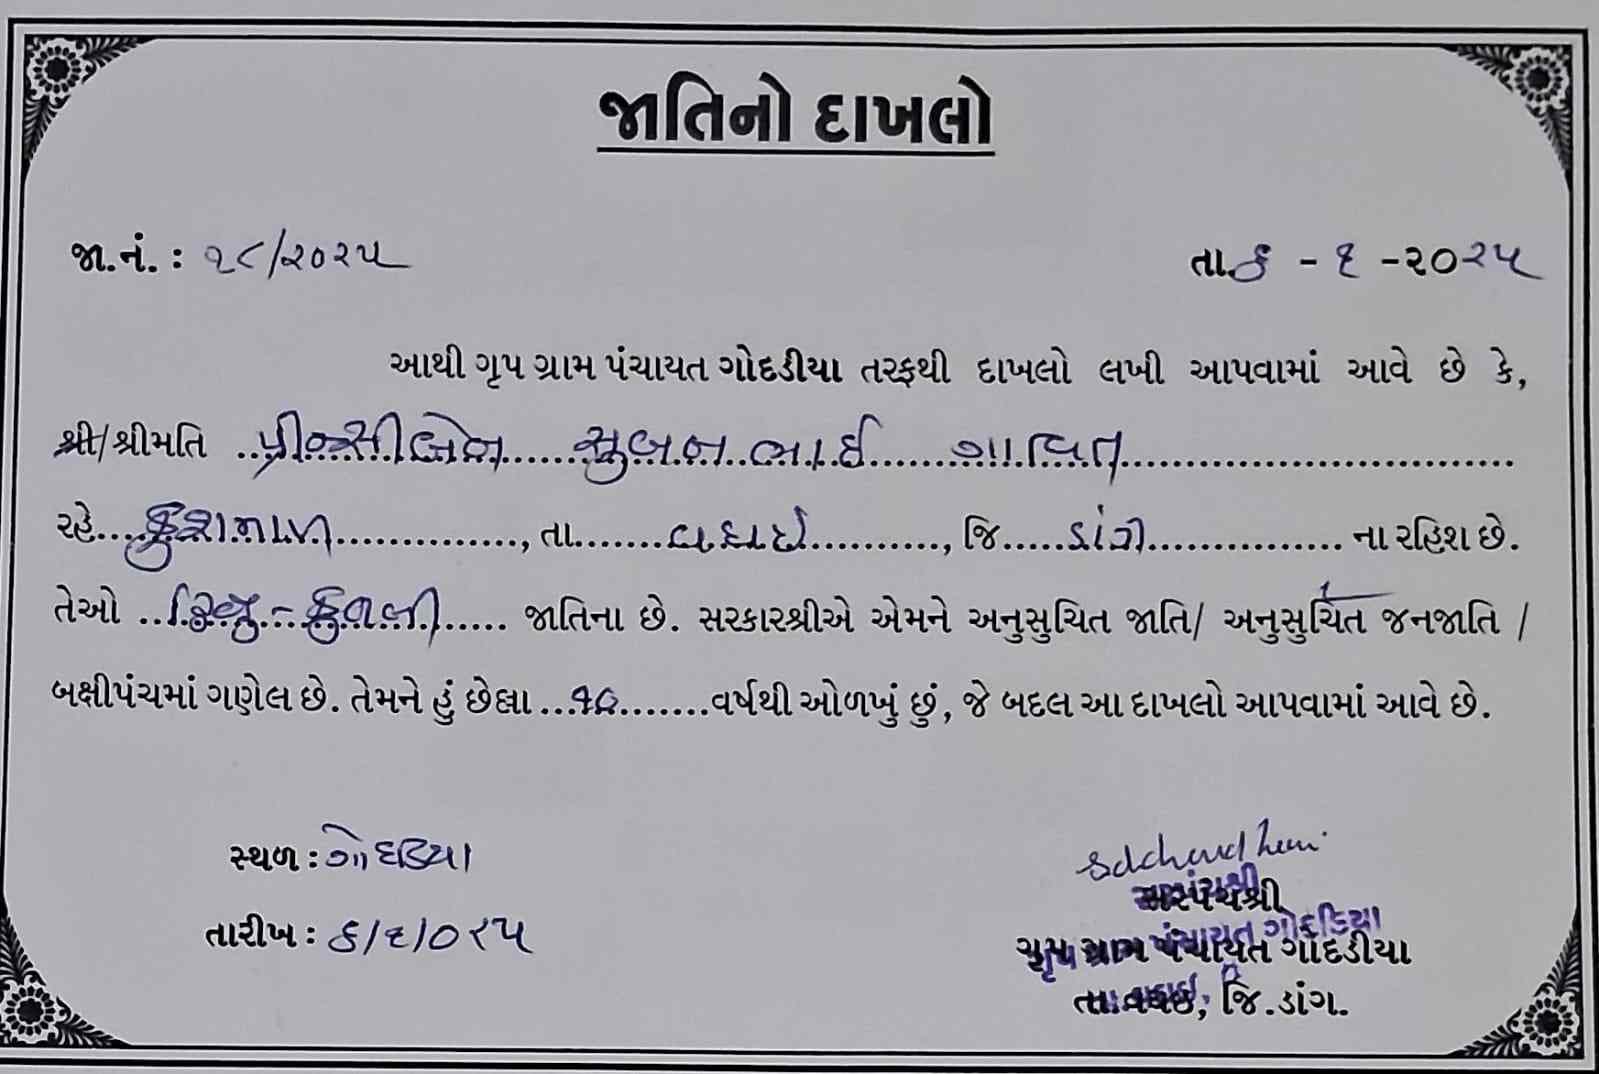 જાતિનો દાખલો
જા.નં. : ૧૮/૨૦૨૫ તા. ૬ - ૬ -૨૦૨૫
આથી ગૃપ ગ્રામ પંચાયત ગોદડીયા તરફથી દાખલો લખી આપવામાં આવે છે કે,
શ્રી/શ્રીમતિ ..પ્રીન્સીબેન.....સુબનભાઈ.....ગાવિત..........
રહે....કુશમાળ.............., તા.......વઘઈ..........., જિ.....ડાંગ............... ના રહિશ છે.
તેઓ ..હિન્દુ - કુનબી...... જાતિના છે. સરકારશ્રીએ એમને અનુસુચિત જાતિ/ અનુસુચિત જનજાતિ /
બક્ષીપંચમાં ગણેલ છે. તેમને હું છેલ્લા ...૧૮.......વર્ષથી ઓળખું છું, જે બદલ આ દાખલો આપવામાં આવે છે.
સ્થળ : ગોદડિયા
તારીખ : ૬/૬/૦૨૫
સરપંચશ્રી
ગૃપ ગ્રામ પંચાયત ગોદડીયા
તા. વઘઈ, જિ. ડાંગ.